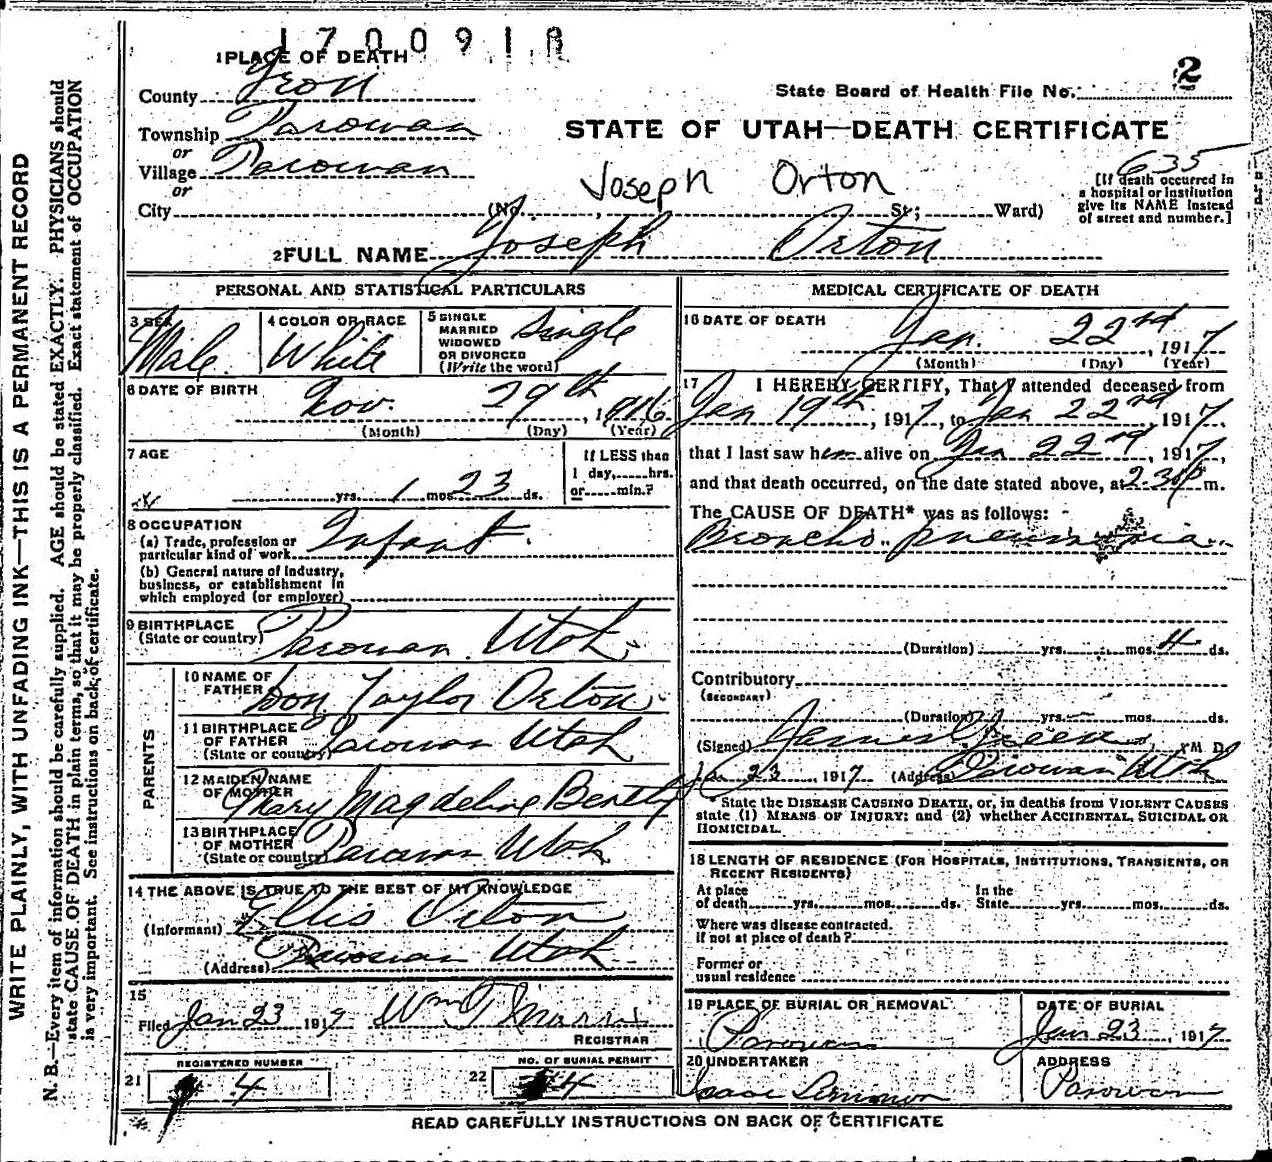 1700918
2
1 PLACE OF DEATH
County Iron
State Board of Health File No.
Township Parowan
STATE OF UTAH—DEATH CERTIFICATE
or
Village Parowan
635
or
Joseph Orton
[If death occurred in a hospital or institution give its NAME instead of street and number.]
City (No. , St.; Ward)
2 FULL NAME Joseph Orton
PERSONAL AND STATISTICAL PARTICULARS
3 SEX Male
4 COLOR OR RACE White
5 SINGLE MARRIED WIDOWED OR DIVORCED (Write the word) Single
6 DATE OF BIRTH Nov. 29th, 1916
(Month) (Day) (Year)
7 AGE
yrs. 1 mos 23 ds.
If LESS than 1 day, hrs. or min.?
8 OCCUPATION
(a) Trade, profession or particular kind of work Infant.
(b) General nature of industry, business, or establishment in which employed (or employer)
9 BIRTHPLACE
(State or country) Parowan Utah
PARENTS
10 NAME OF FATHER Don Taylor Orton
11 BIRTHPLACE OF FATHER (State or country) Parowan Utah
12 MAIDEN NAME OF MOTHER Mary Magdeline Bently
13 BIRTHPLACE OF MOTHER (State or country) Parowan Utah
14 THE ABOVE IS TRUE TO THE BEST OF MY KNOWLEDGE
(Informant) Ellis Orton
(Address) Parowan Utah
15
Filed Jan 23 1917 Wm T Morris
REGISTRAR
REGISTERED NUMBER
21 4
NO. OF BURIAL PERMIT
22 4
MEDICAL CERTIFICATE OF DEATH
16 DATE OF DEATH
Jan. 22nd, 1917
(Month) (Day) (Year)
17 I HEREBY CERTIFY, That I attended deceased from
Jan 19th, 1917, to Jan 22nd, 1917
that I last saw him alive on Jan 22nd, 1917,
and that death occurred, on the date stated above, at 2-30 p m.
The CAUSE OF DEATH* was as follows:
Broncho pneumonia
(Duration) yrs. mos. 4 ds.
Contributory
(SECONDARY)
(Duration) yrs. mos. ds.
(Signed) James Green, M. D.
Jan 23, 1917 (Address) Parowan Utah
*State the DISEASE CAUSING DEATH, or, in deaths from VIOLENT CAUSES
state (1) MEANS OF INJURY; and (2) whether ACCIDENTAL, SUICIDAL OR
HOMICIDAL.
18 LENGTH OF RESIDENCE (FOR HOSPITALS, INSTITUTIONS, TRANSIENTS, OR
RECENT RESIDENTS)
At place of death yrs. mos. ds. In the State yrs. mos. ds.
Where was disease contracted.
if not at place of death?
Former or
usual residence
19 PLACE OF BURIAL OR REMOVAL
Parowan
DATE OF BURIAL
Jan 23, 1917
20 UNDERTAKER
Isaac
ADDRESS
Parowan
READ CAREFULLY INSTRUCTIONS ON BACK OF CERTIFICATE
WRITE PLAINLY, WITH UNFADING INK—THIS IS A PERMANENT RECORD
N. B.—Every item of information should be carefully supplied. AGE should be stated EXACTLY. PHYSICIANS should
state CAUSE OF DEATH in plain terms, so that it may be properly classified. Exact statement of OCCUPATION
is very important. See instructions on back of certificate.